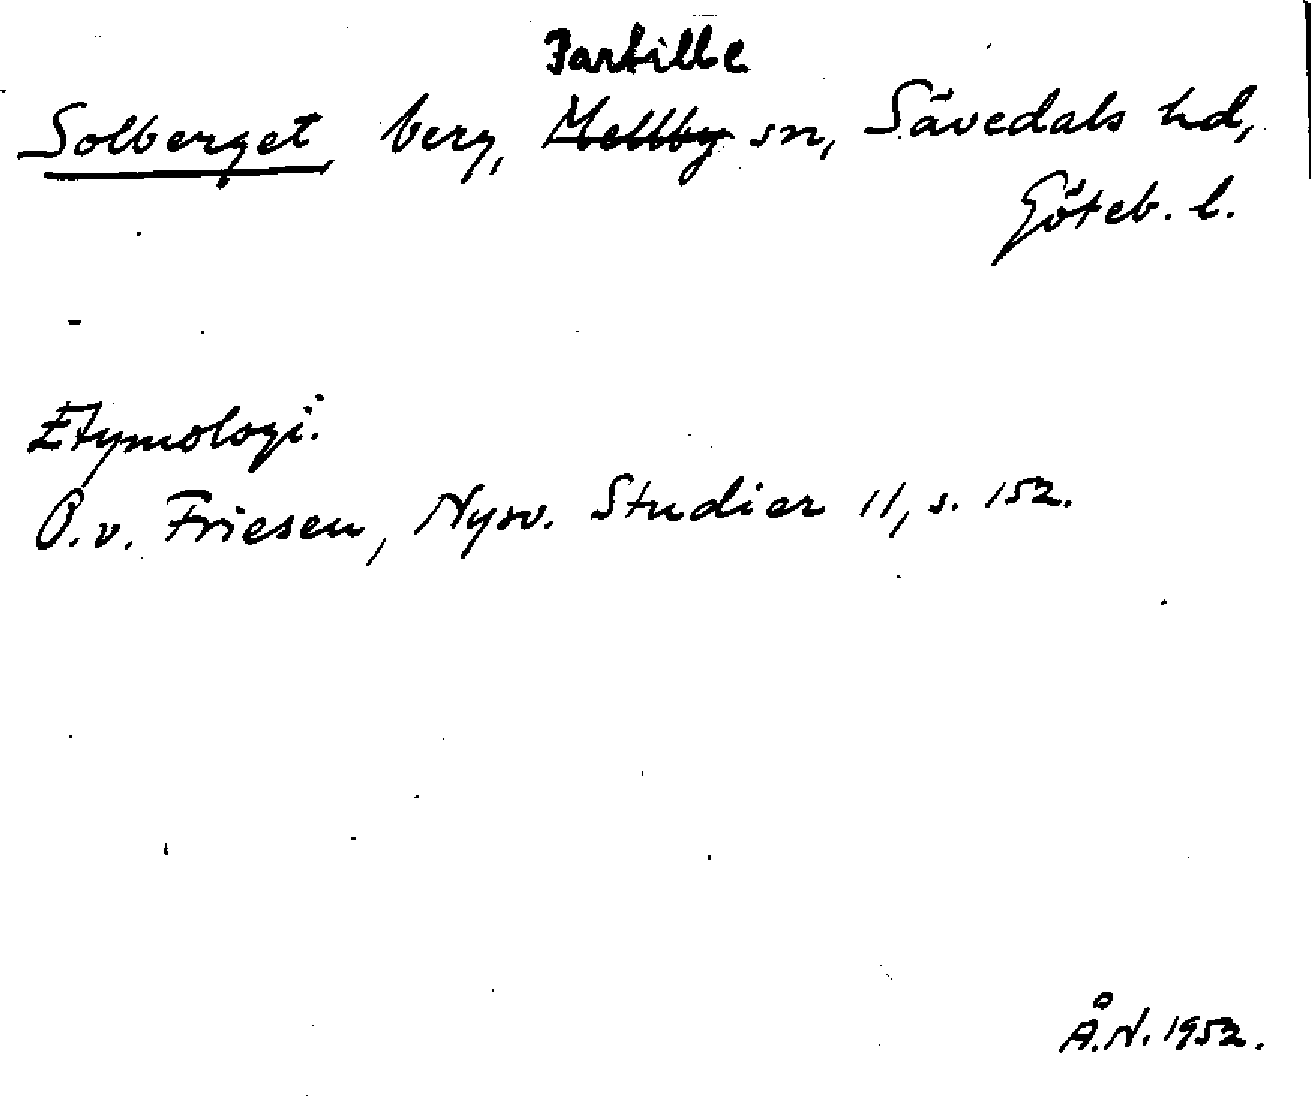 Partille
Solberget, berg, Mellby sn, Sävedals hd,
Göteb. l.
Etymologi:
O. v. Friesen, Nysv. Studier 11, s. 152.
Å.N. 1952.